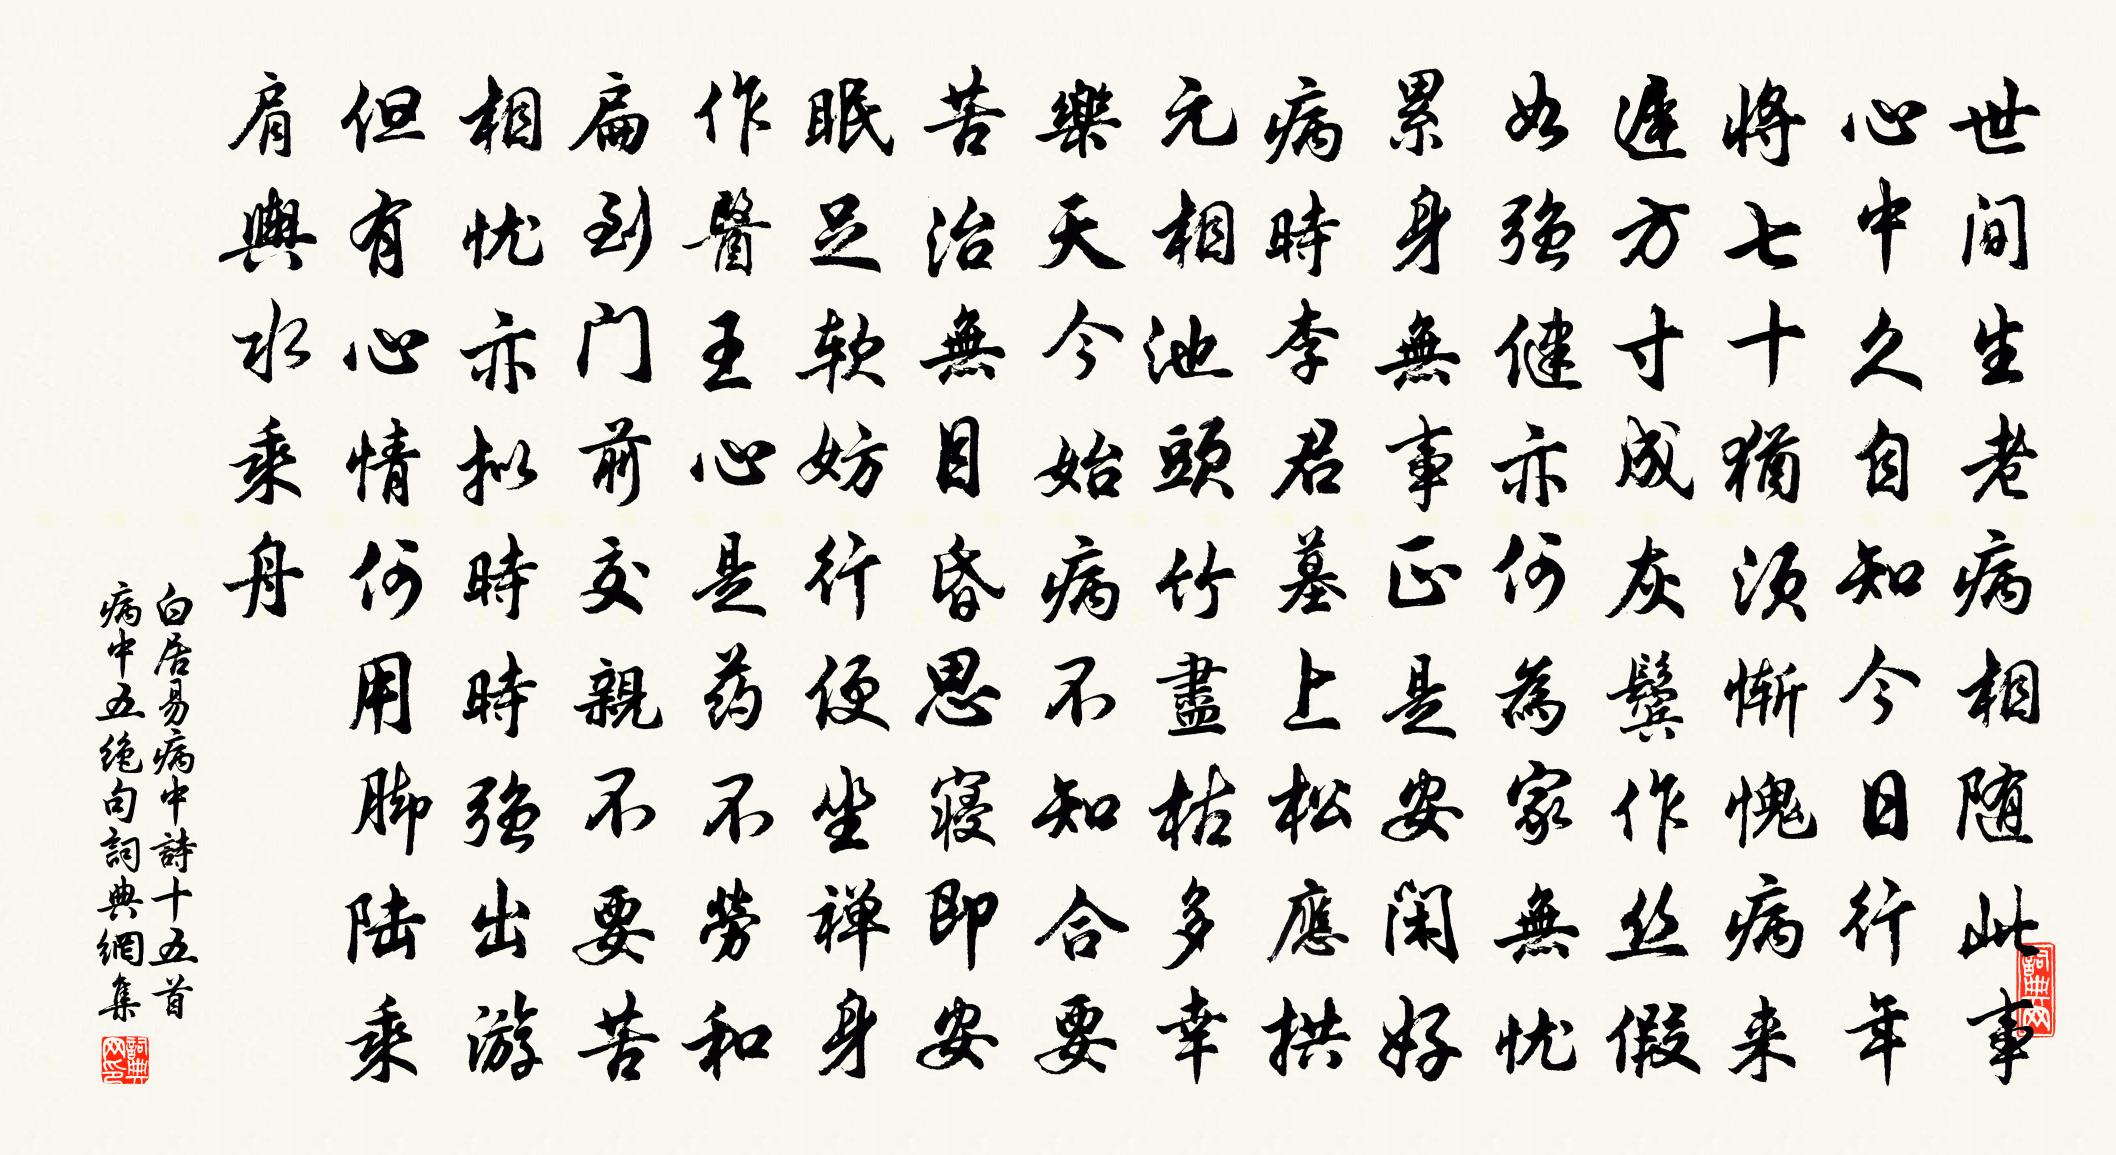 世间生老病相随此事
心中久自知今日行年
将七十猶须惭愧病来
遲方寸成灰鬓作丝假
如强健亦何為家無忧
累身無事正是安闲好
病時李君墓上松應拱
元相池頭竹盡枯多幸
樂天今始病不知合要
苦治無目昏思寝即安
眠足软妨行便坐禅身
作醫王心是药不劳和
扁到门前交親不要苦
相忧亦拟時時强出游
但有心情何用脚陆乘
肩輿水乘舟
白居易病中詩十五首
病中五绝句詞典網集
詞典网
詞典网印